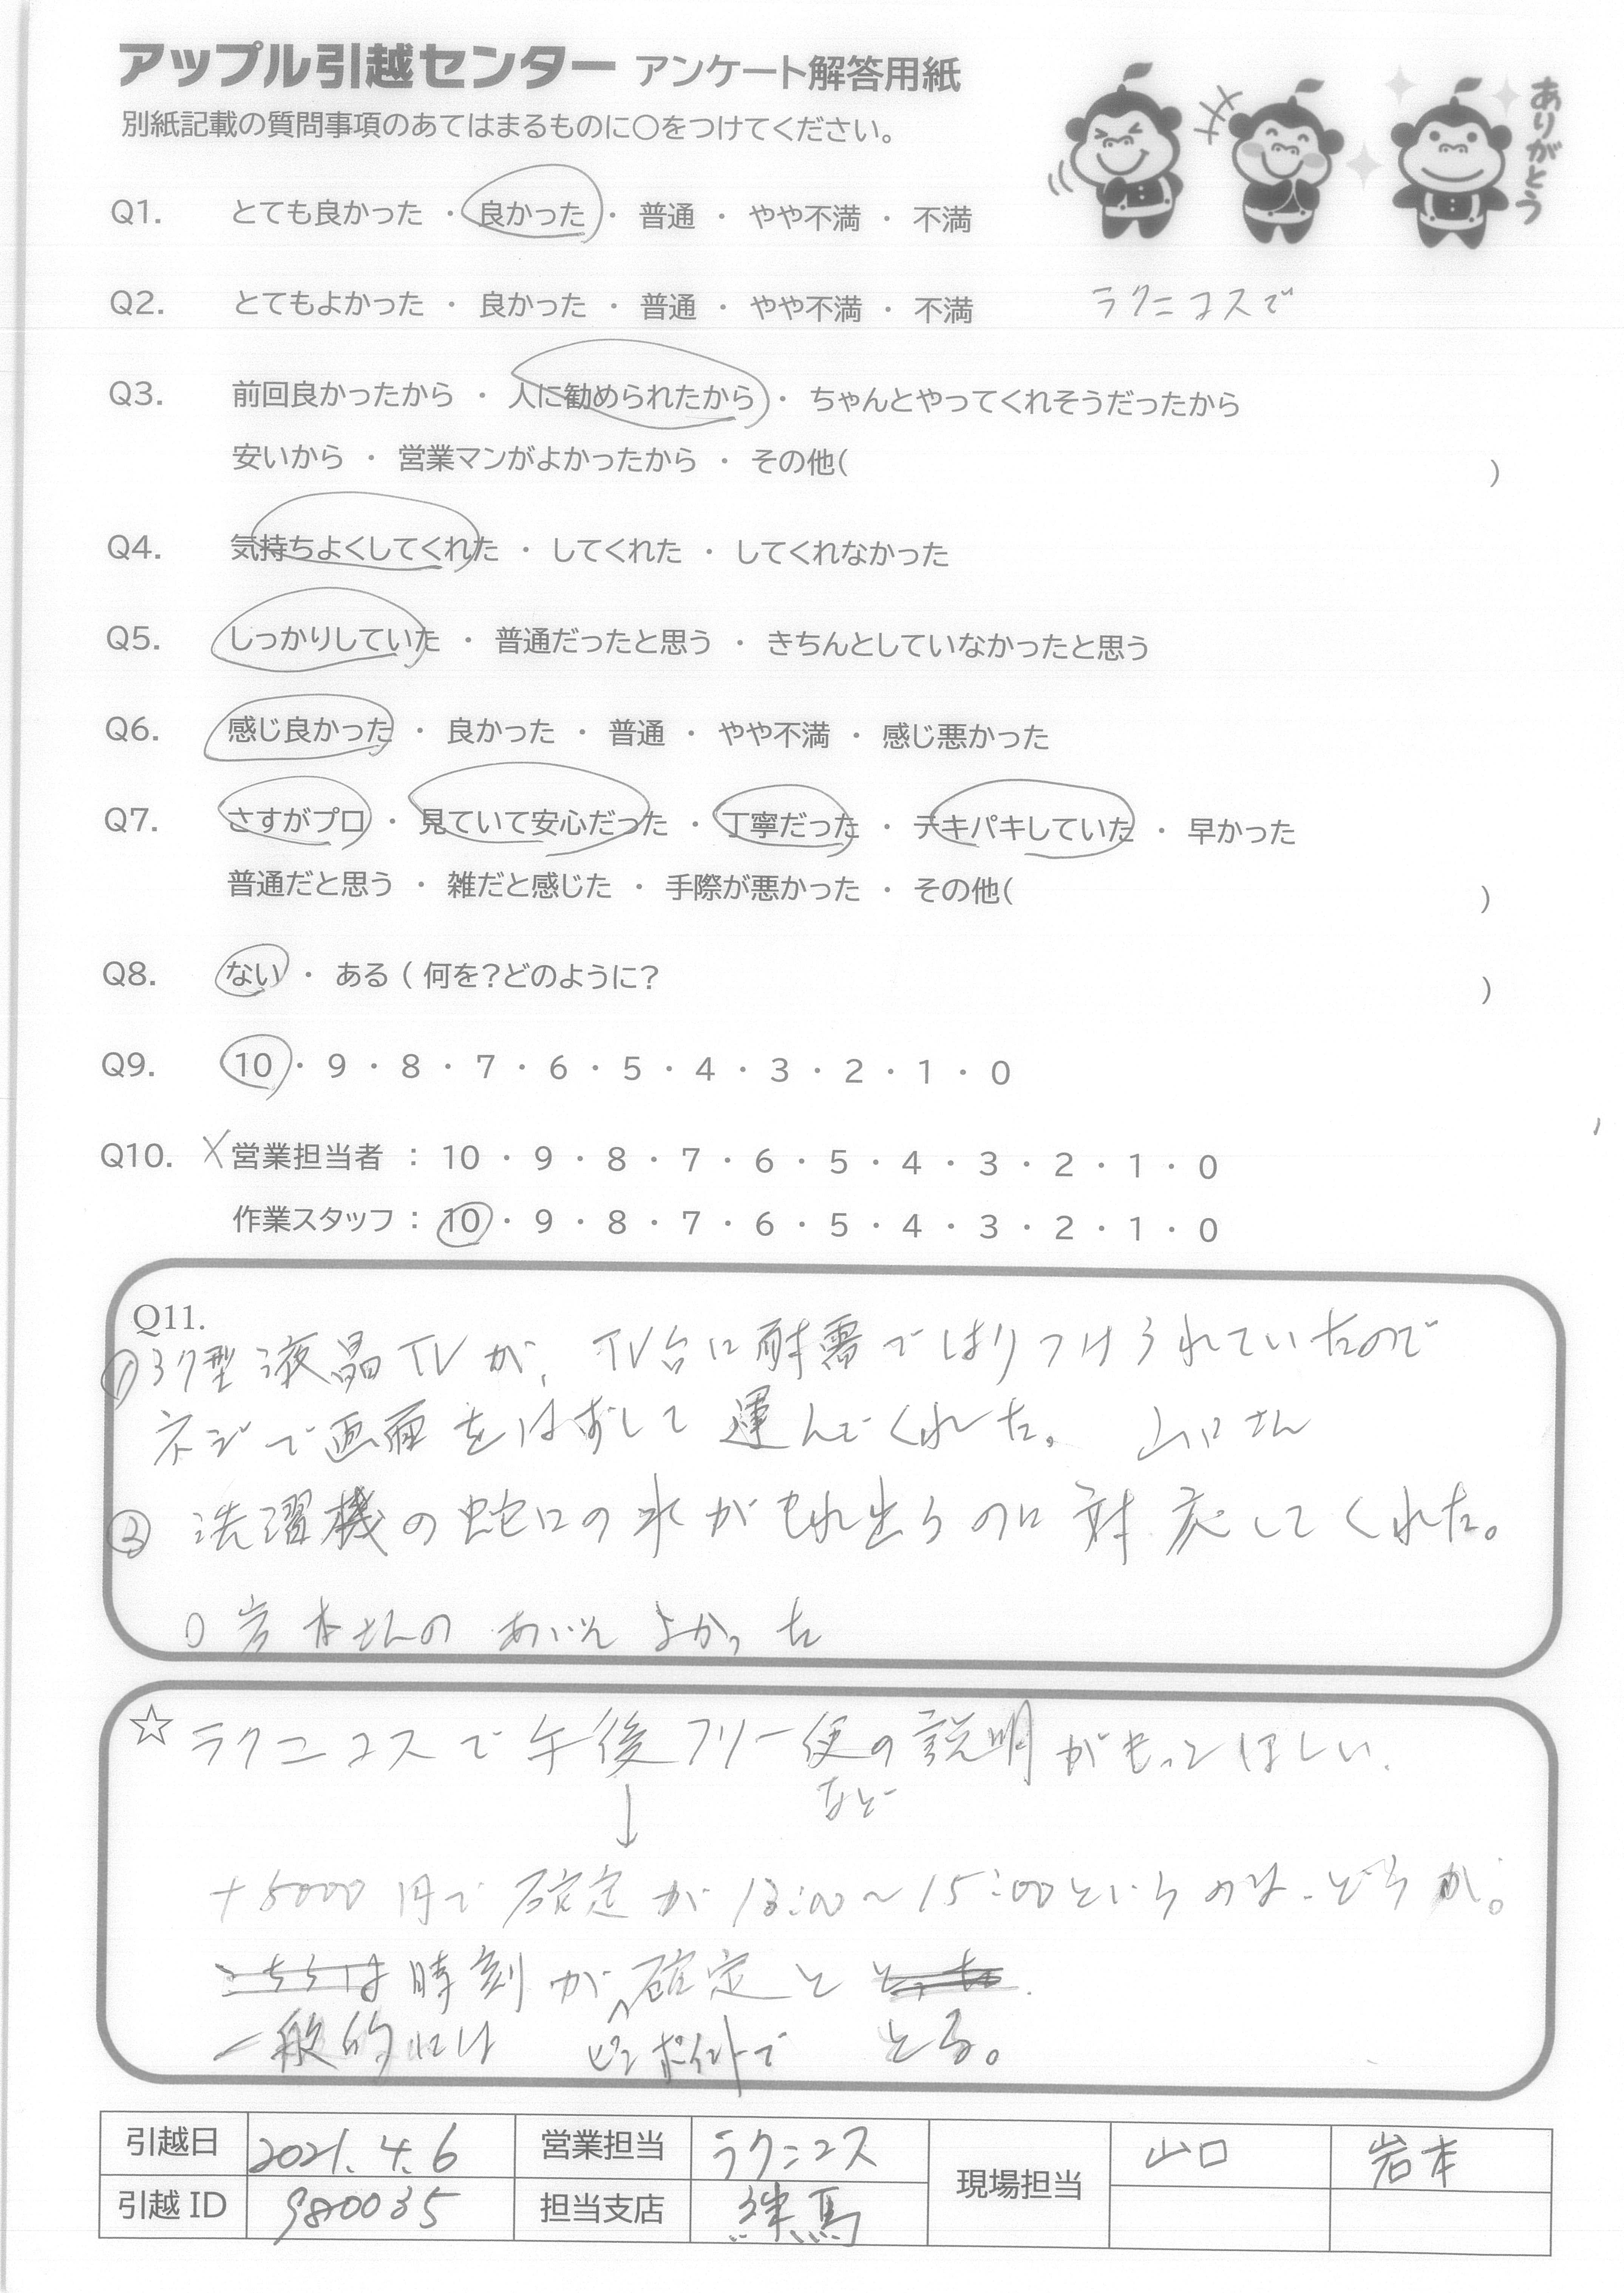 アップル引越センター アンケート解答用紙
別紙記載の質問事項のあてはまるものに〇をつけてください。
ありがとう
Q1. とても良かった ・ 良かった ・ 普通 ・ やや不満 ・ 不満
Q2. とてもよかった ・ 良かった ・ 普通 ・ やや不満 ・ 不満 ラクニコスで
Q3. 前回良かったから ・ 人に勧められたから ・ ちゃんとやってくれそうだったから
安いから ・ 営業マンがよかったから ・ その他( )
Q4. 気持ちよくしてくれた ・ してくれた ・ してくれなかった
Q5. しっかりしていた ・ 普通だったと思う ・ きちんとしていなかったと思う
Q6. 感じ良かった ・ 良かった ・ 普通 ・ やや不満 ・ 感じ悪かった
Q7. さすがプロ ・ 見ていて安心だった ・ 丁寧だった ・ テキパキしていた ・ 早かった
普通だと思う ・ 雑だと感じた ・ 手際が悪かった ・ その他( )
Q8. ない ・ ある ( 何を?どのように? )
Q9. 10 ・ 9 ・ 8 ・ 7 ・ 6 ・ 5 ・ 4 ・ 3 ・ 2 ・ 1 ・ 0
Q10. X営業担当者 : 10 ・ 9 ・ 8 ・ 7 ・ 6 ・ 5 ・ 4 ・ 3 ・ 2 ・ 1 ・ 0
作業スタッフ : 10 ・ 9 ・ 8 ・ 7 ・ 6 ・ 5 ・ 4 ・ 3 ・ 2 ・ 1 ・ 0
Q11.
① 37型液晶TVが、TV台に耐震ではりつけられていたので
ネジで画面をはずして運んでくれた。 山口さん
② 洗濯機の蛇口の水がもれ出るのに対応してくれた。
○ 岩本さんの よかった
☆ ラクニコスで午後フリー便の説明がもっとほしい.
↓ など
+5000円で確定が13:00～15:00というのは、どうか。
こちらは 時刻が 確定と とった
一般的には ピンポイントで とる。
引越日 2021.4.6 営業担当 ラクニコス 現場担当 山口 岩本
引越ID 980035 担当支店 練馬